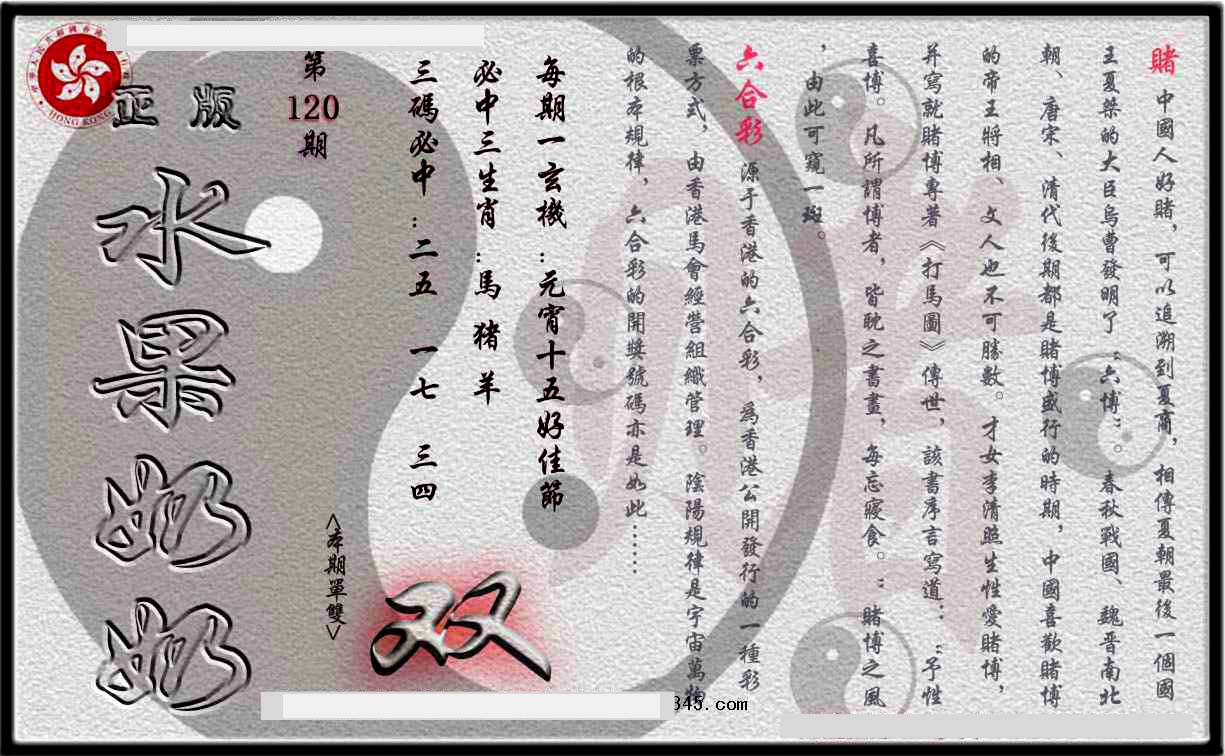 賭 中國人好賭，可以追溯到夏商，相傳夏朝最後一個國
王夏桀的大臣烏曹發明了“六博”。春秋戰國、魏晋南北
朝、唐宋、清代後期都是賭博盛行的時期，中國喜歡賭博
的帝王將相、文人也不可勝數。才女李清照生性愛賭博，
并寫就賭博專著《打馬圖》傳世，該書序言寫道：“予性
喜博。凡所謂博者，皆耽之晝畫，每忘寢食。”賭博之風
，由此可窺一斑。
六合彩 源于香港的六合彩，爲香港公開發行的一種彩
票方式，由香港馬會經營組織管理。陰陽規律是宇宙萬物
的根本規律，六合彩的開獎號碼亦是如此……
每期一玄機：元宵十五好佳節
必中三生肖：馬 猪 羊
三碼必中：二五 一七 三四
<本期單雙>
双
第
120
期
正版
水果奶奶
HONG KONG
345.com